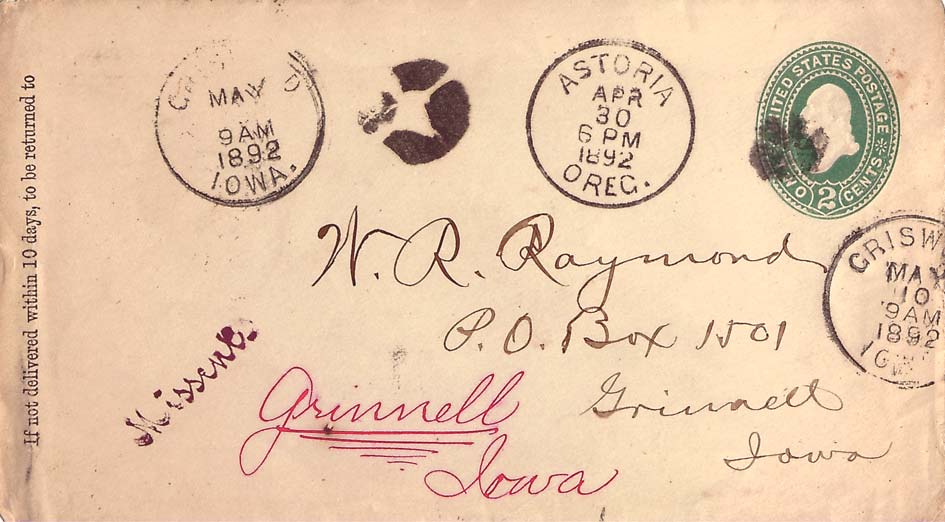 If not delivered within 10 days, to be returned to
MAY
9AM
1892
IOWA.
ASTORIA
APR
30
6 PM
1892
OREG.
UNITED STATES POSTAGE
TWO 2 CENTS
MAY
10
9AM
1892
W. R. Raymond
P. O. Box 1501
Grinnell
Iowa
Missent.
Grinnell
Iowa